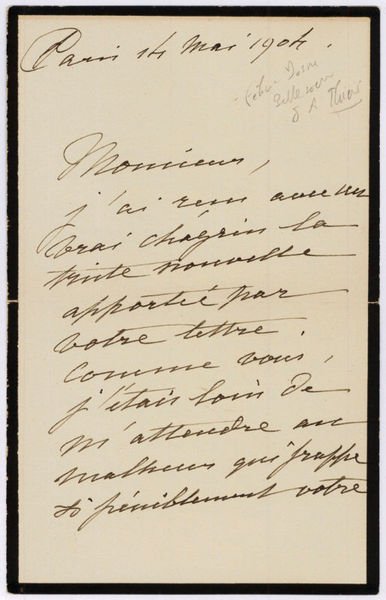 Paris 14 Mai 1904.
Belle soeur
A Thiers
Monsieur,
j'ai reçu avec un
vrai chagrin la
triste nouvelle
apportée par
votre lettre.
comme vous,
j'étais loin de
m'attendre au
malheur qui frappe
si péniblement votre